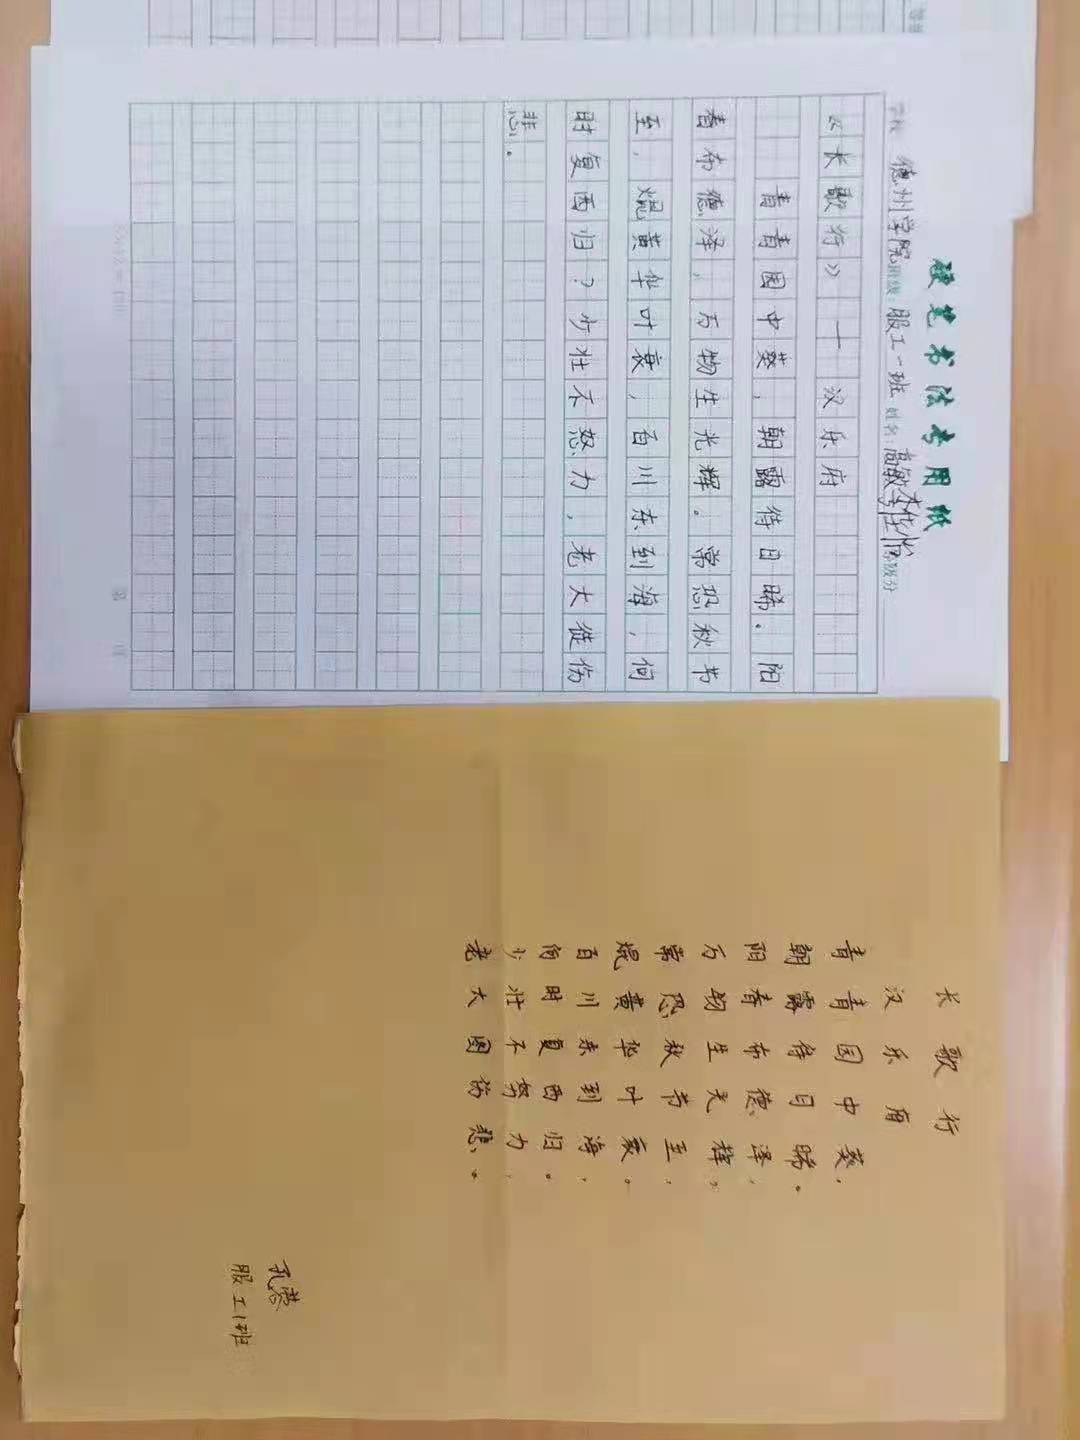 硬笔书法专用纸
学校 德州学院 班级: 服工一班 姓名: 高敏 李佳怡 等级分
《长歌行》 — 汉乐府
青青园中葵,朝露待日晞。阳
春布德泽,万物生光辉。常恐秋节
至,焜黄华叶衰,百川东到海,何
时复西归?少壮不怒力,老大徒伤
悲。
长歌行
汉乐府
青青园中葵,
朝露待日晞。
阳春布德泽,
万物生光辉。
常恐秋节至,
焜黄华叶衰。
百川东到海,
何时复西归。
少壮不努力,
老大图伤悲。
孔
服工1班